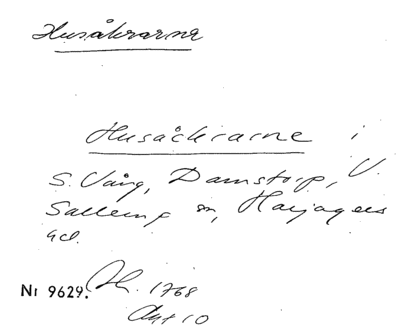 Husåkrarne
Husåckrarne i
S. Vång, Damstorp, V.
Sallerup sn, Harjagers
hd.
Nr 9629. Ah. 1768
Akt 10